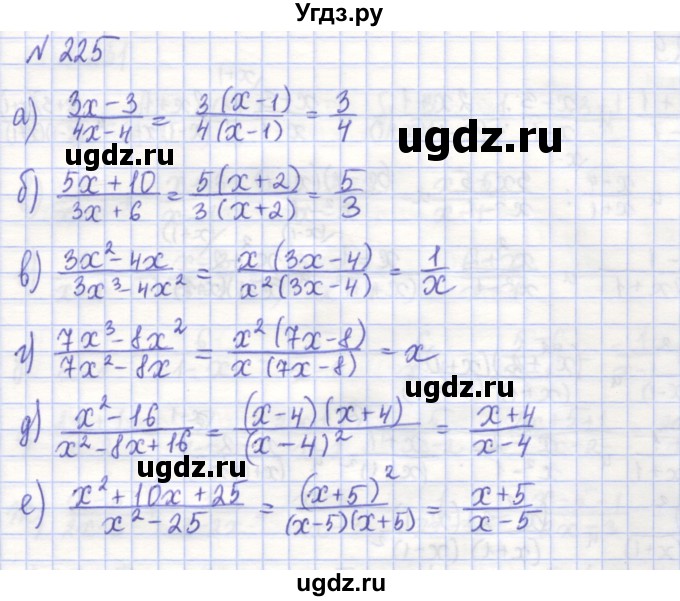 Угдз.ру
№ 225
а) (3x-3)/(4x-4) = 3(x-1)/4(x-1) = 3/4
ugdz.ru
ugdz.ru
б) (5x+10)/(3x+6) = 5(x+2)/3(x+2) = 5/3
в) (3x²-4x)/(3x³-4x²) = x(3x-4)/x²(3x-4) = 1/x
г) (7x³-8x²)/(7x²-8x) = x²(7x-8)/x(7x-8) = x
ugdz.ru
д) (x²-16)/(x²-8x+16) = (x-4)(x+4)/(x-4)² = (x+4)/(x-4)
ugdz.ru
е) (x²+10x+25)/(x²-25) = (x+5)²/(x-5)(x+5) = (x+5)/(x-5)
ugdz.ru